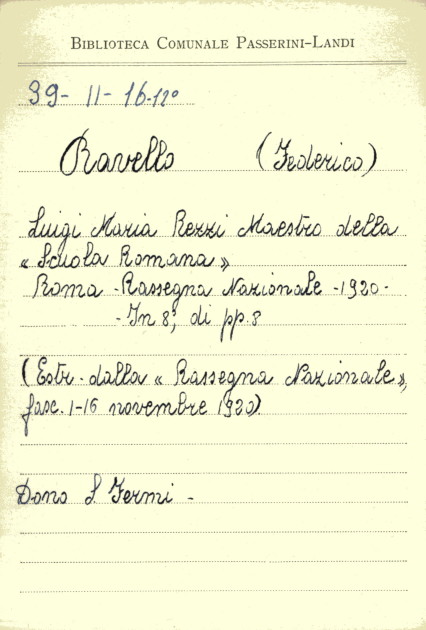 BIBLIOTECA COMUNALE PASSERINI-LANDI
39- II- 16-12º
Ravello (Federico)
Luigi Maria Rezzi Maestro della
« Scuola Romana »
Roma - Rassegna Nazionale - 1920 -
- In 8º, di pp. 8
(Estr. dalla « Rassegna Nazionale »,
fasc. 1-16 novembre 1920)
Dono S. Fermi -